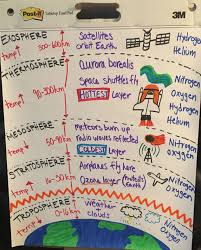 Post-it
3M
EXOSPHERE
temp↑
500-600km
Satellites
orbit Earth
Hydrogen
Helium
THERMOSPHERE
temp↑
90-300km
Aurora borealis
Space shuttles fly
HOTTEST Layer
Nitrogen
Oxygen
Hydrogen
Helium
MESOSPHERE
temp↓
Meteors burn up
radio waves reflected
COLDEST Layer
Nitrogen
oxygen
STRATOSPHERE
temp↑
Airplanes fly here
Ozone layer (Protects Earth)
Nitrogen
Oxygen
TROPOSPHERE
temp↓
0-16km
weather
clouds
Nitrogen
Oxygen